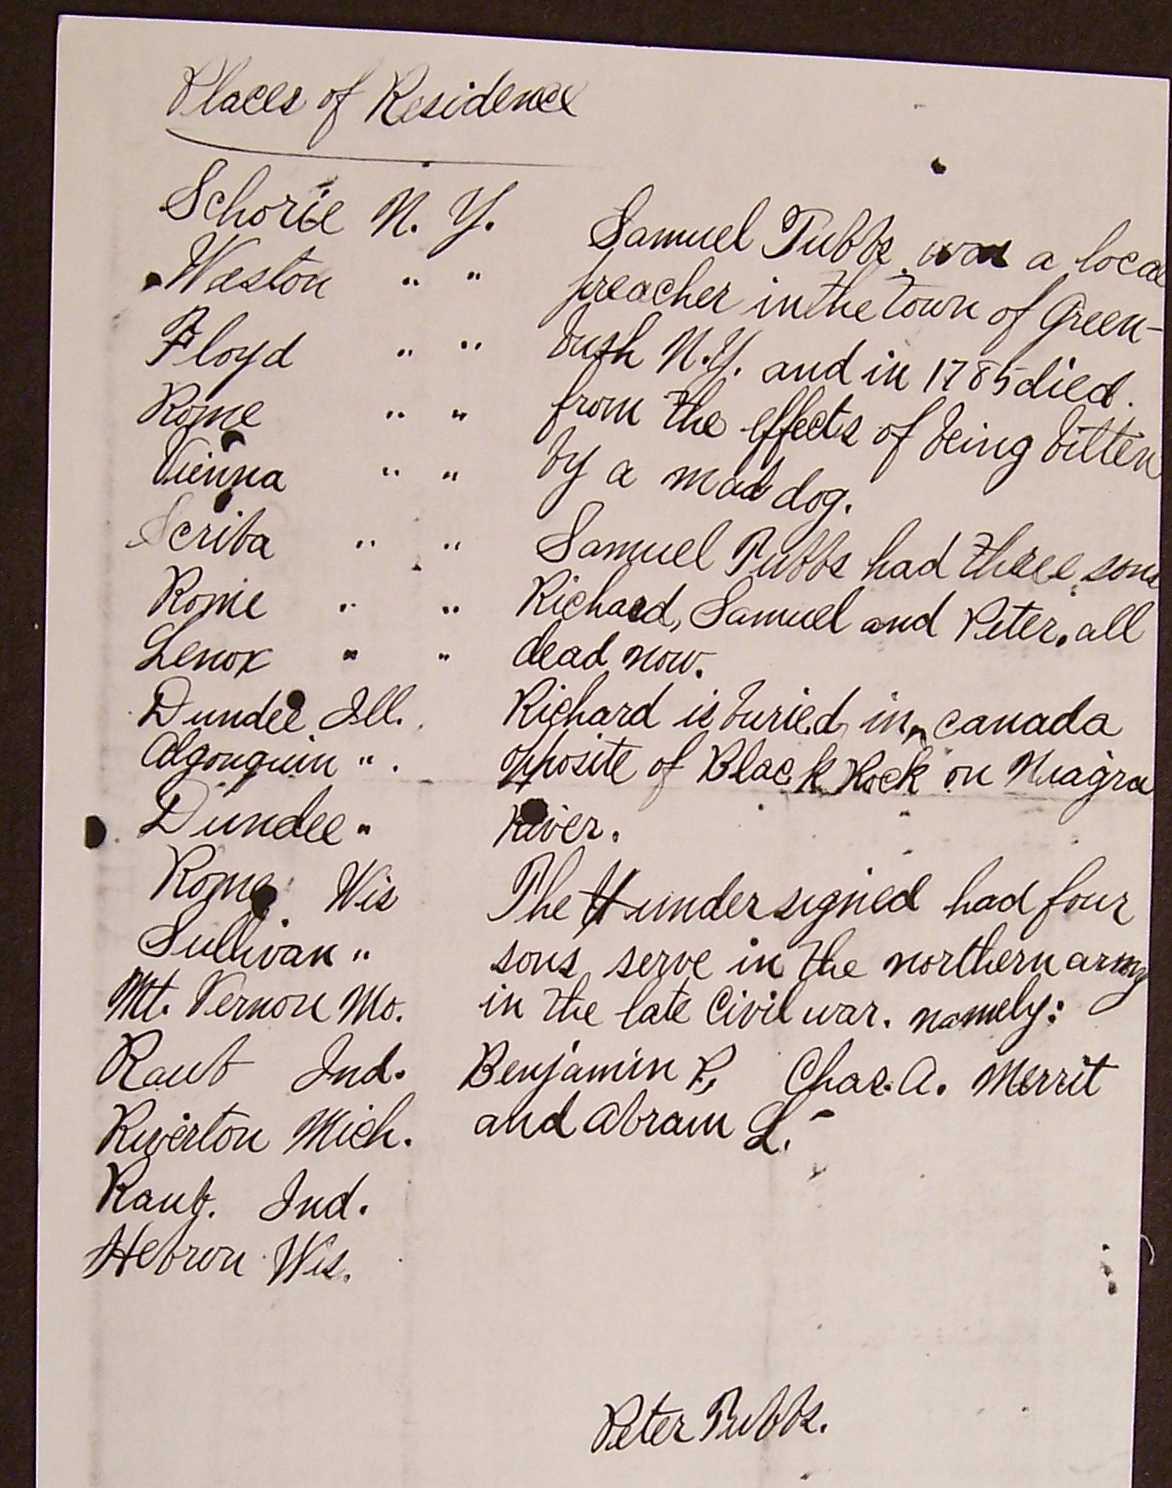 Places of Residence
Schorie N. Y.
Weston " "
Floyd " "
Rome " "
Vienna " "
Scriba " "
Rome " "
Lenox " "
Dundee Ill.
Algonquin " .
Dundee "
Rome Wis
Sullivan "
Mt. Vernon Mo.
Raub Ind.
Riverton Mich.
Raub. Ind.
Hebron Wis.
Samuel Tubbs was a local
preacher in the town of Green-
bush N.Y. and in 1785 died.
from the effects of being bitten
by a mad dog.
Samuel Tubbs had three sons
Richard, Samuel and Peter. all
dead now.
Richard is buried in canada
opposite of Black Rock on Niagra
River.
The undersigned had four
sons serve in the northern army
in the late Civil war. namely:
Benjamin P, Chas. A. Merrit
and Abram L.
Peter Tubbs.